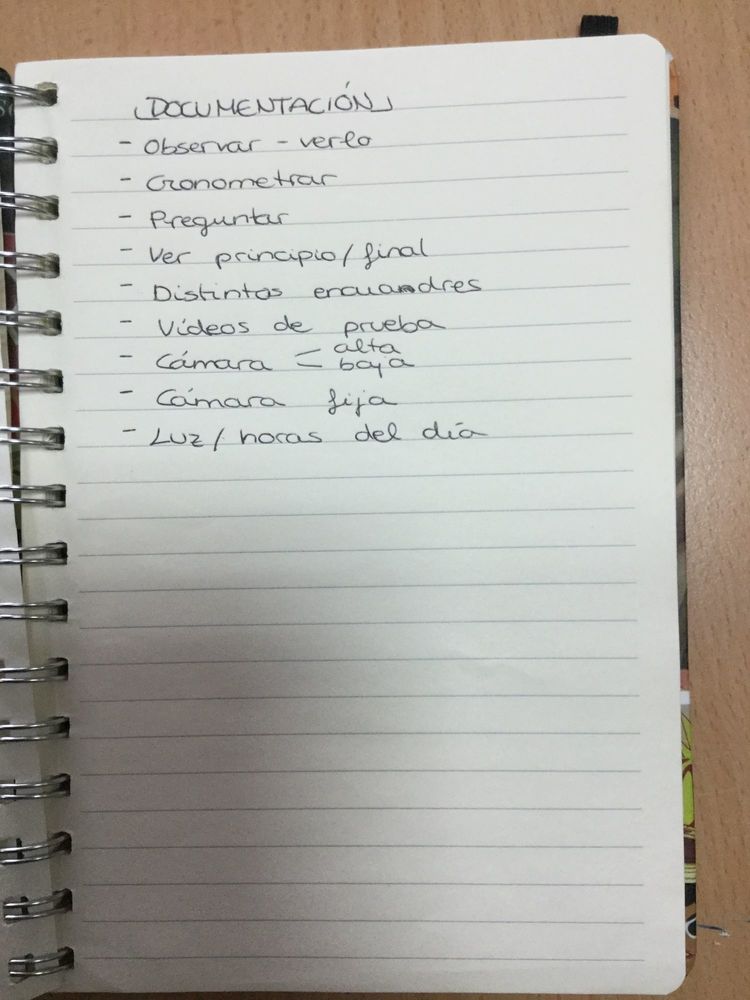 DOCUMENTACIÓN
- Observar - verlo
- Cronometrar
- Preguntar
- Ver principio / final
- Distintos encuadres
- Vídeos de prueba
- Cámara < alta
baja
- Cámara fija
- Luz / horas del día